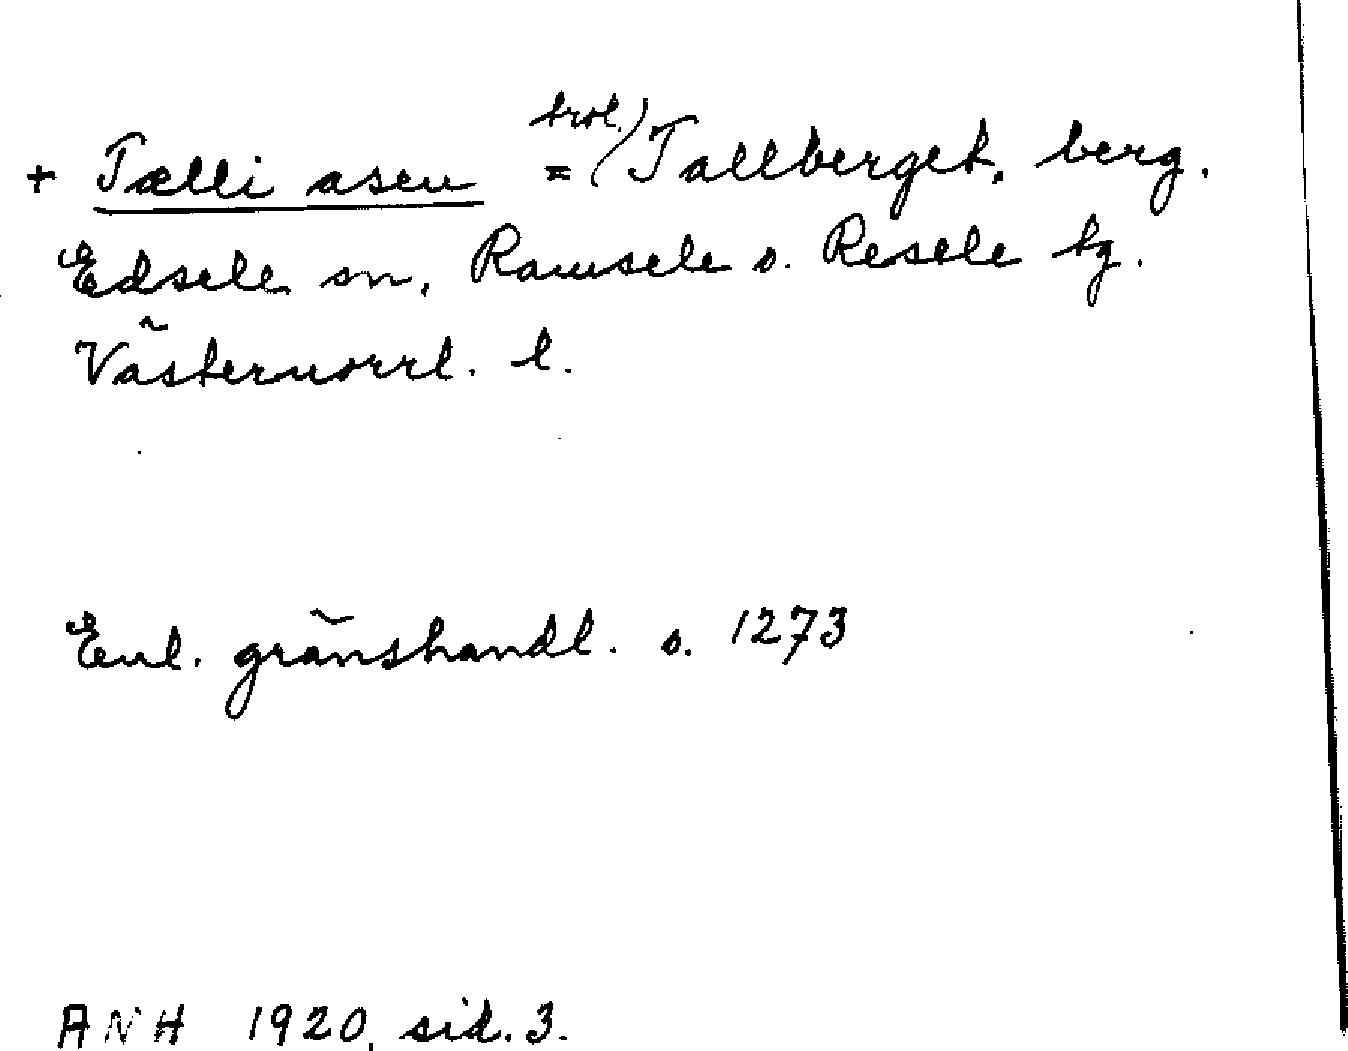 + Tælli asen = (trol.) Tallberget, berg.
Edsele sn, Ramsele o. Resele tg.
Västernorrl. l.
Enl. gränshandl. o. 1273
ANH 1920, sid. 3.